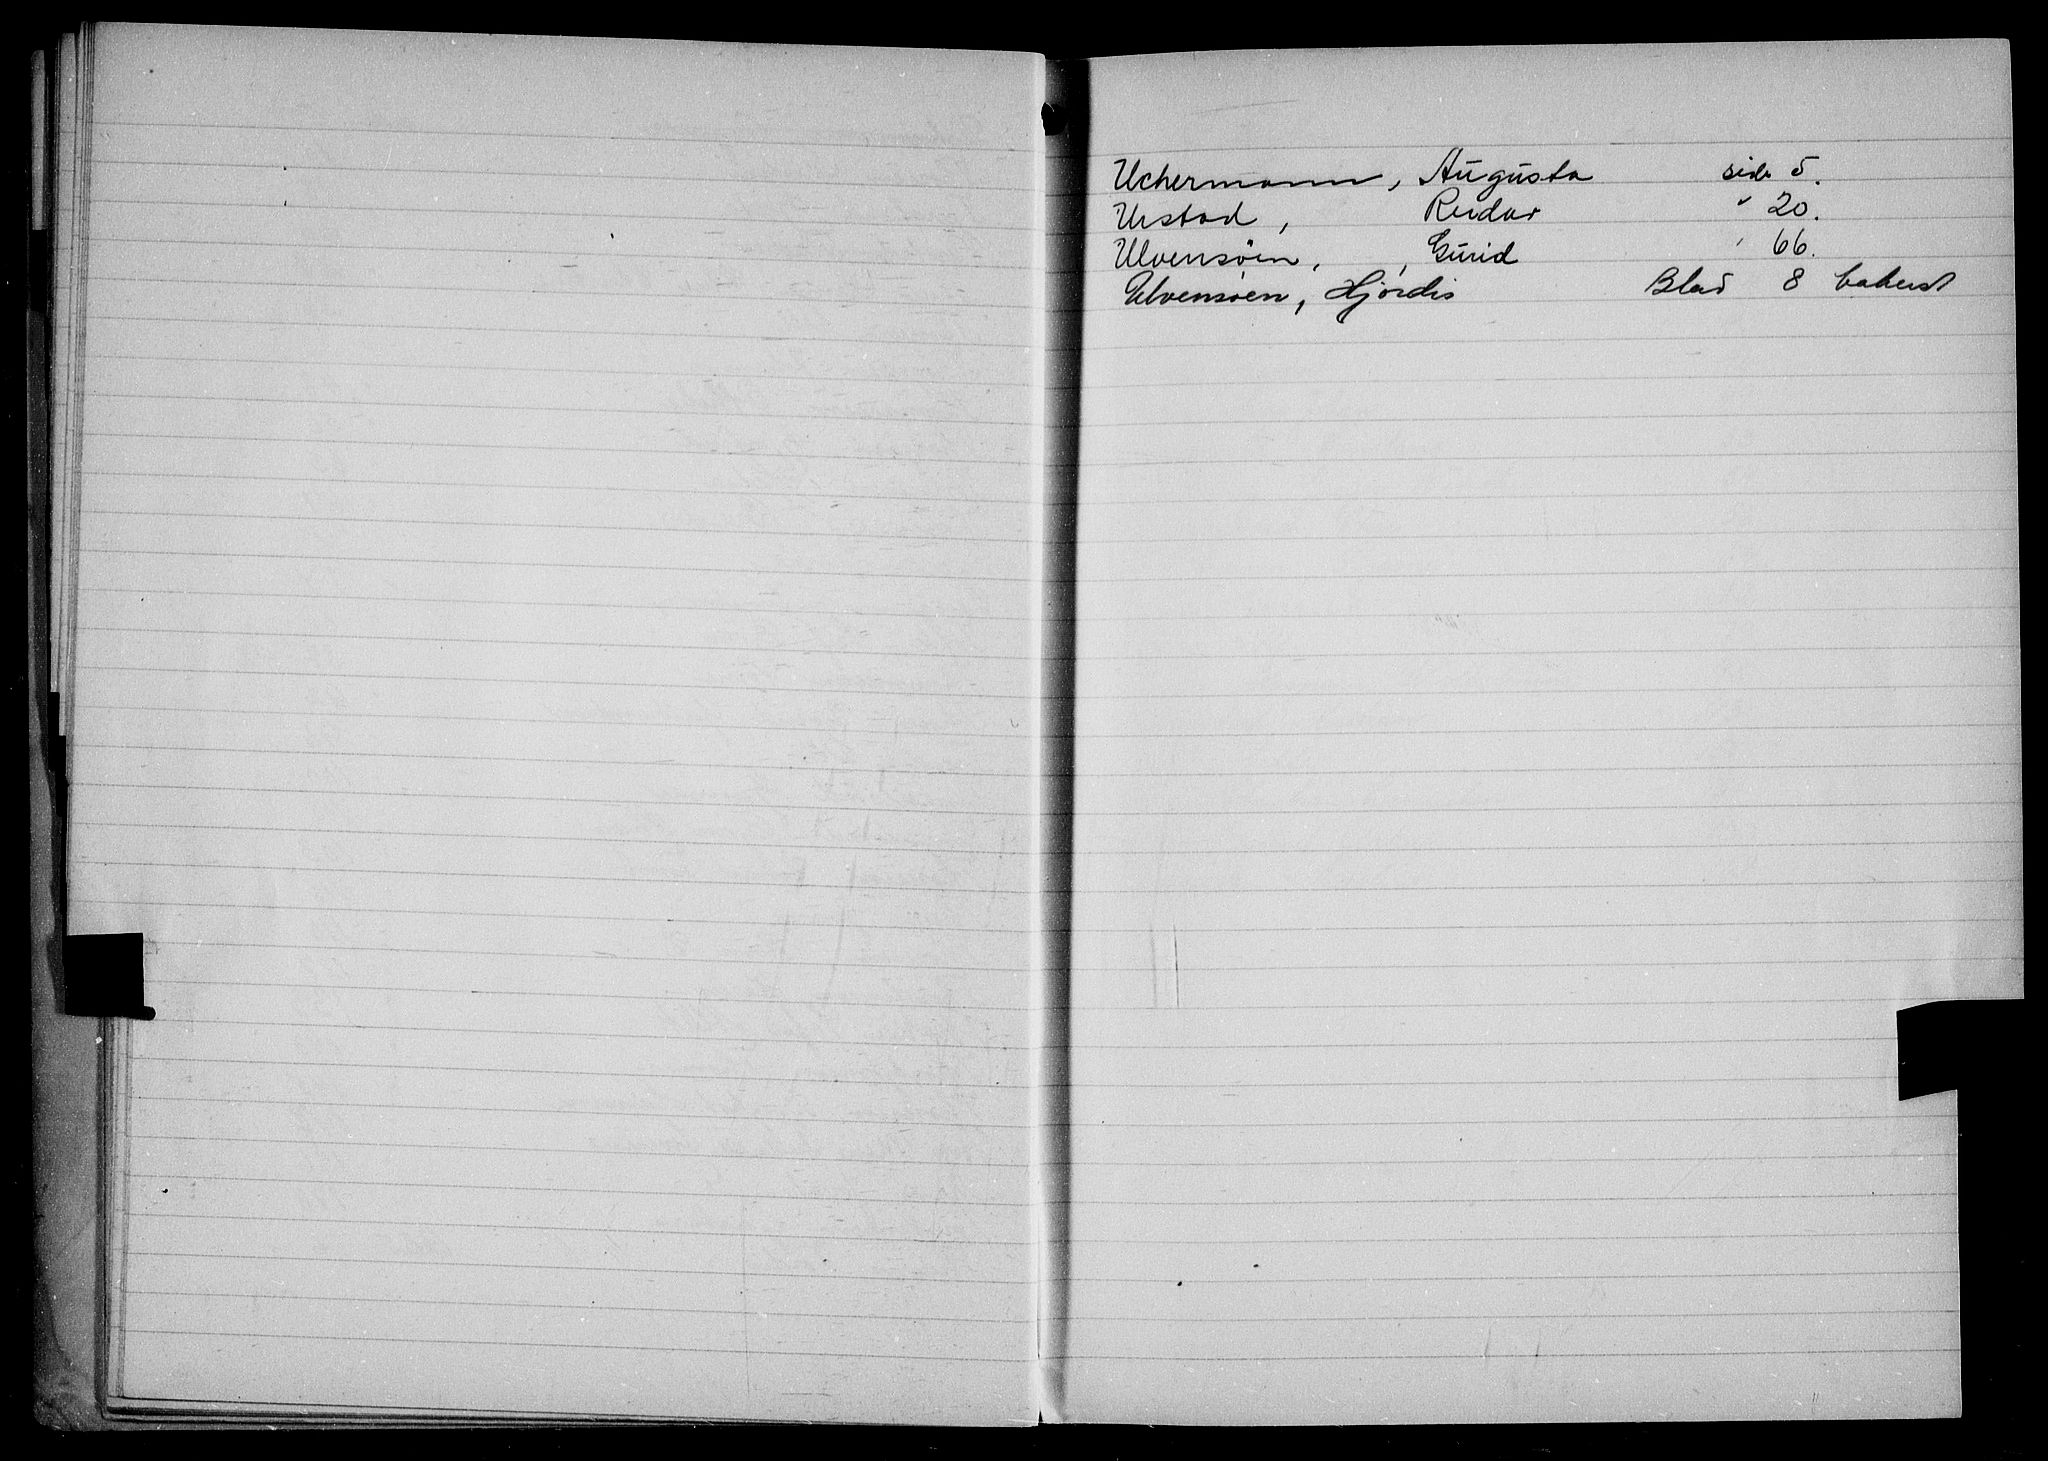 Uchermann, Augusta side 5.
Urstad, Reidar " 20.
Ulvensøen, Gurid " 66.
Ulvensøen, Hjørdis Blad 8 bakerst